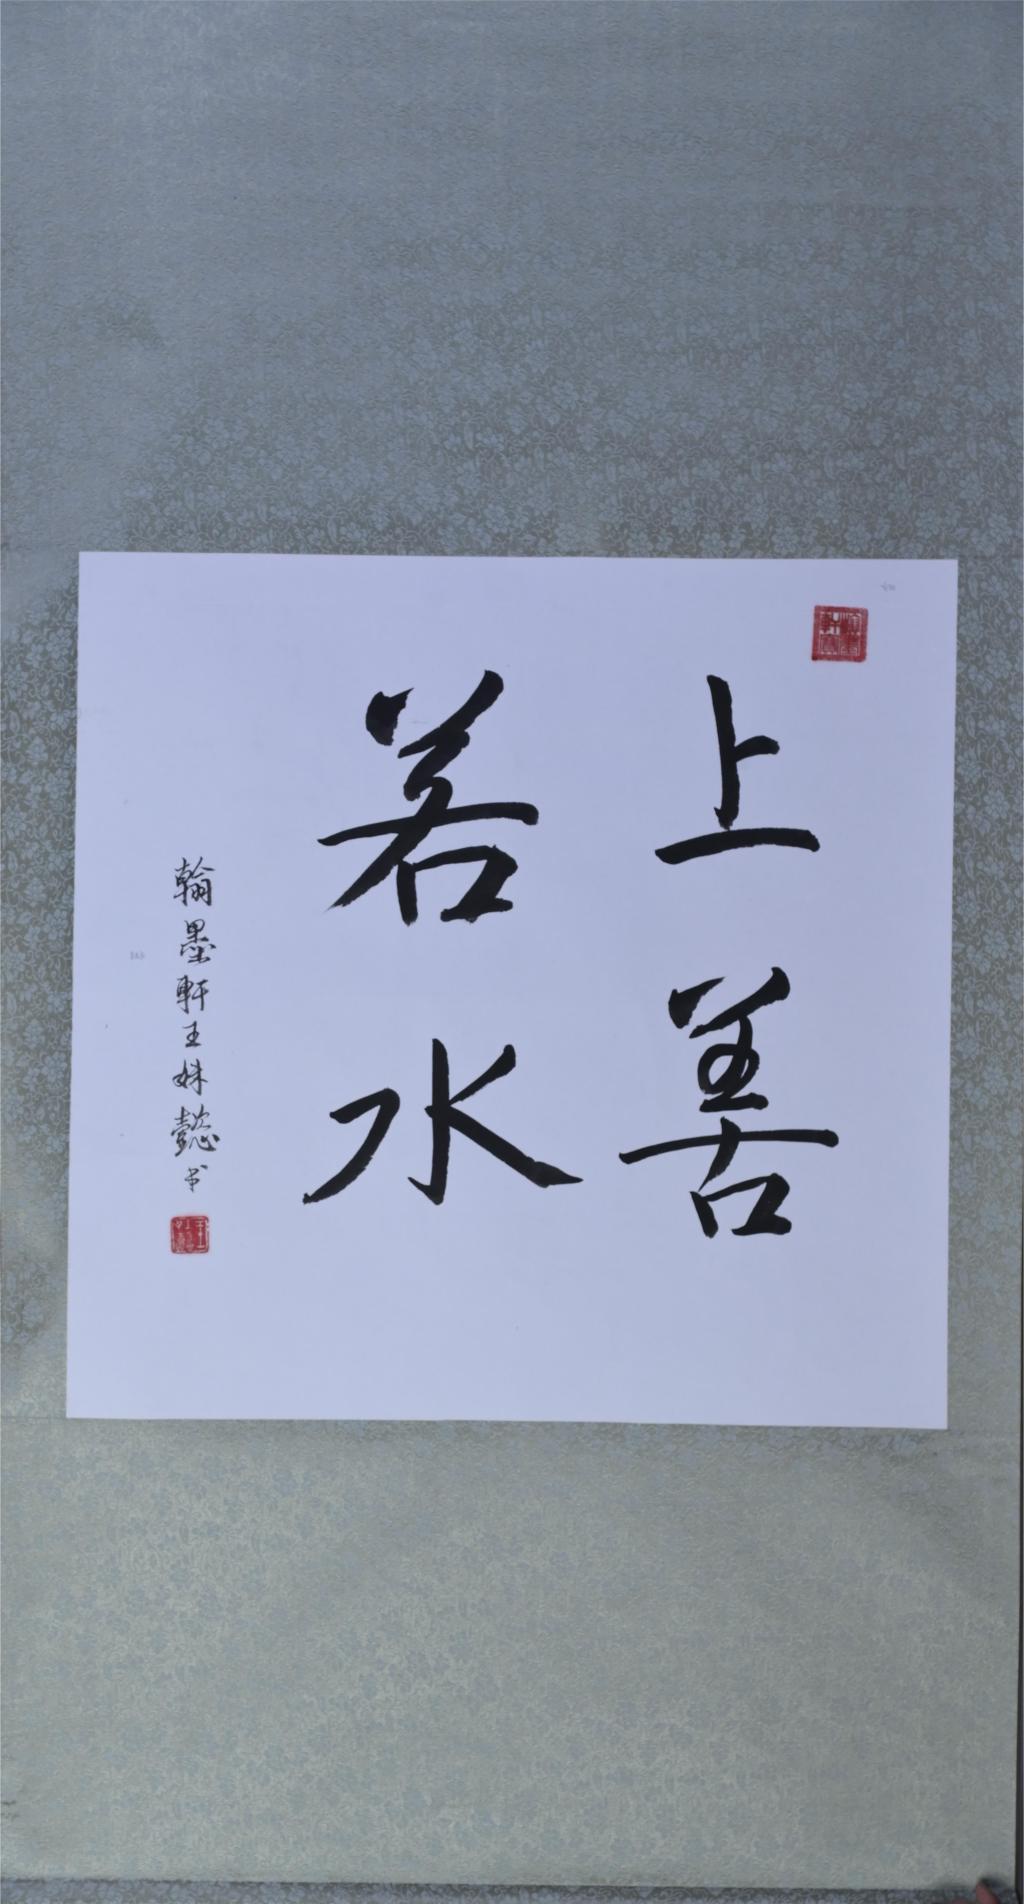 上善
若水
翰墨軒王姝懿书